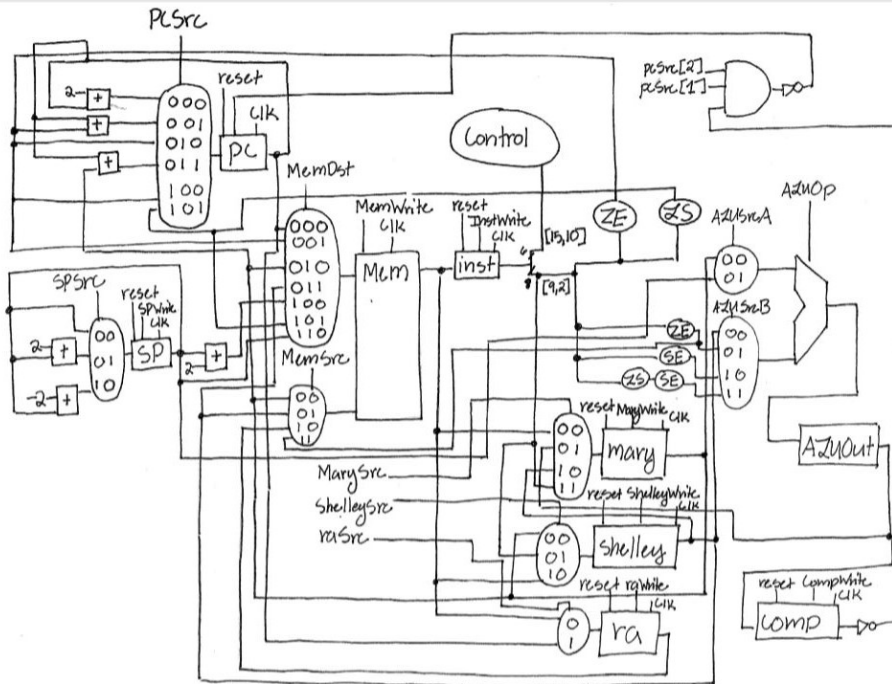 PCSrc
reset
Clk
PC
2
+
+
+
000
001
010
011
100
101
pcSrc[2]
pcSrc[1]
Control
MemDst
000
001
010
011
100
101
110
MemWrite
Clk
Mem
reset
InstWrite
Clk
inst
6
[15,10]
8
[9,2]
ZE
ZS
ALUSrcA
00
01
ALUOp
ALUSrcB
00
01
10
11
ZE
SE
ZS
SE
SPSrc
00
01
10
reset
SPWrite
Clk
SP
2
+
-2
+
2
+
MemSrc
00
01
10
11
ALUOut
MarySrc
ShelleySrc
raSrc
00
01
10
11
reset
MaryWrite
Clk
mary
00
01
10
reset
ShelleyWrite
Clk
Shelley
0
1
reset
raWrite
Clk
ra
reset
CompWrite
Clk
Comp